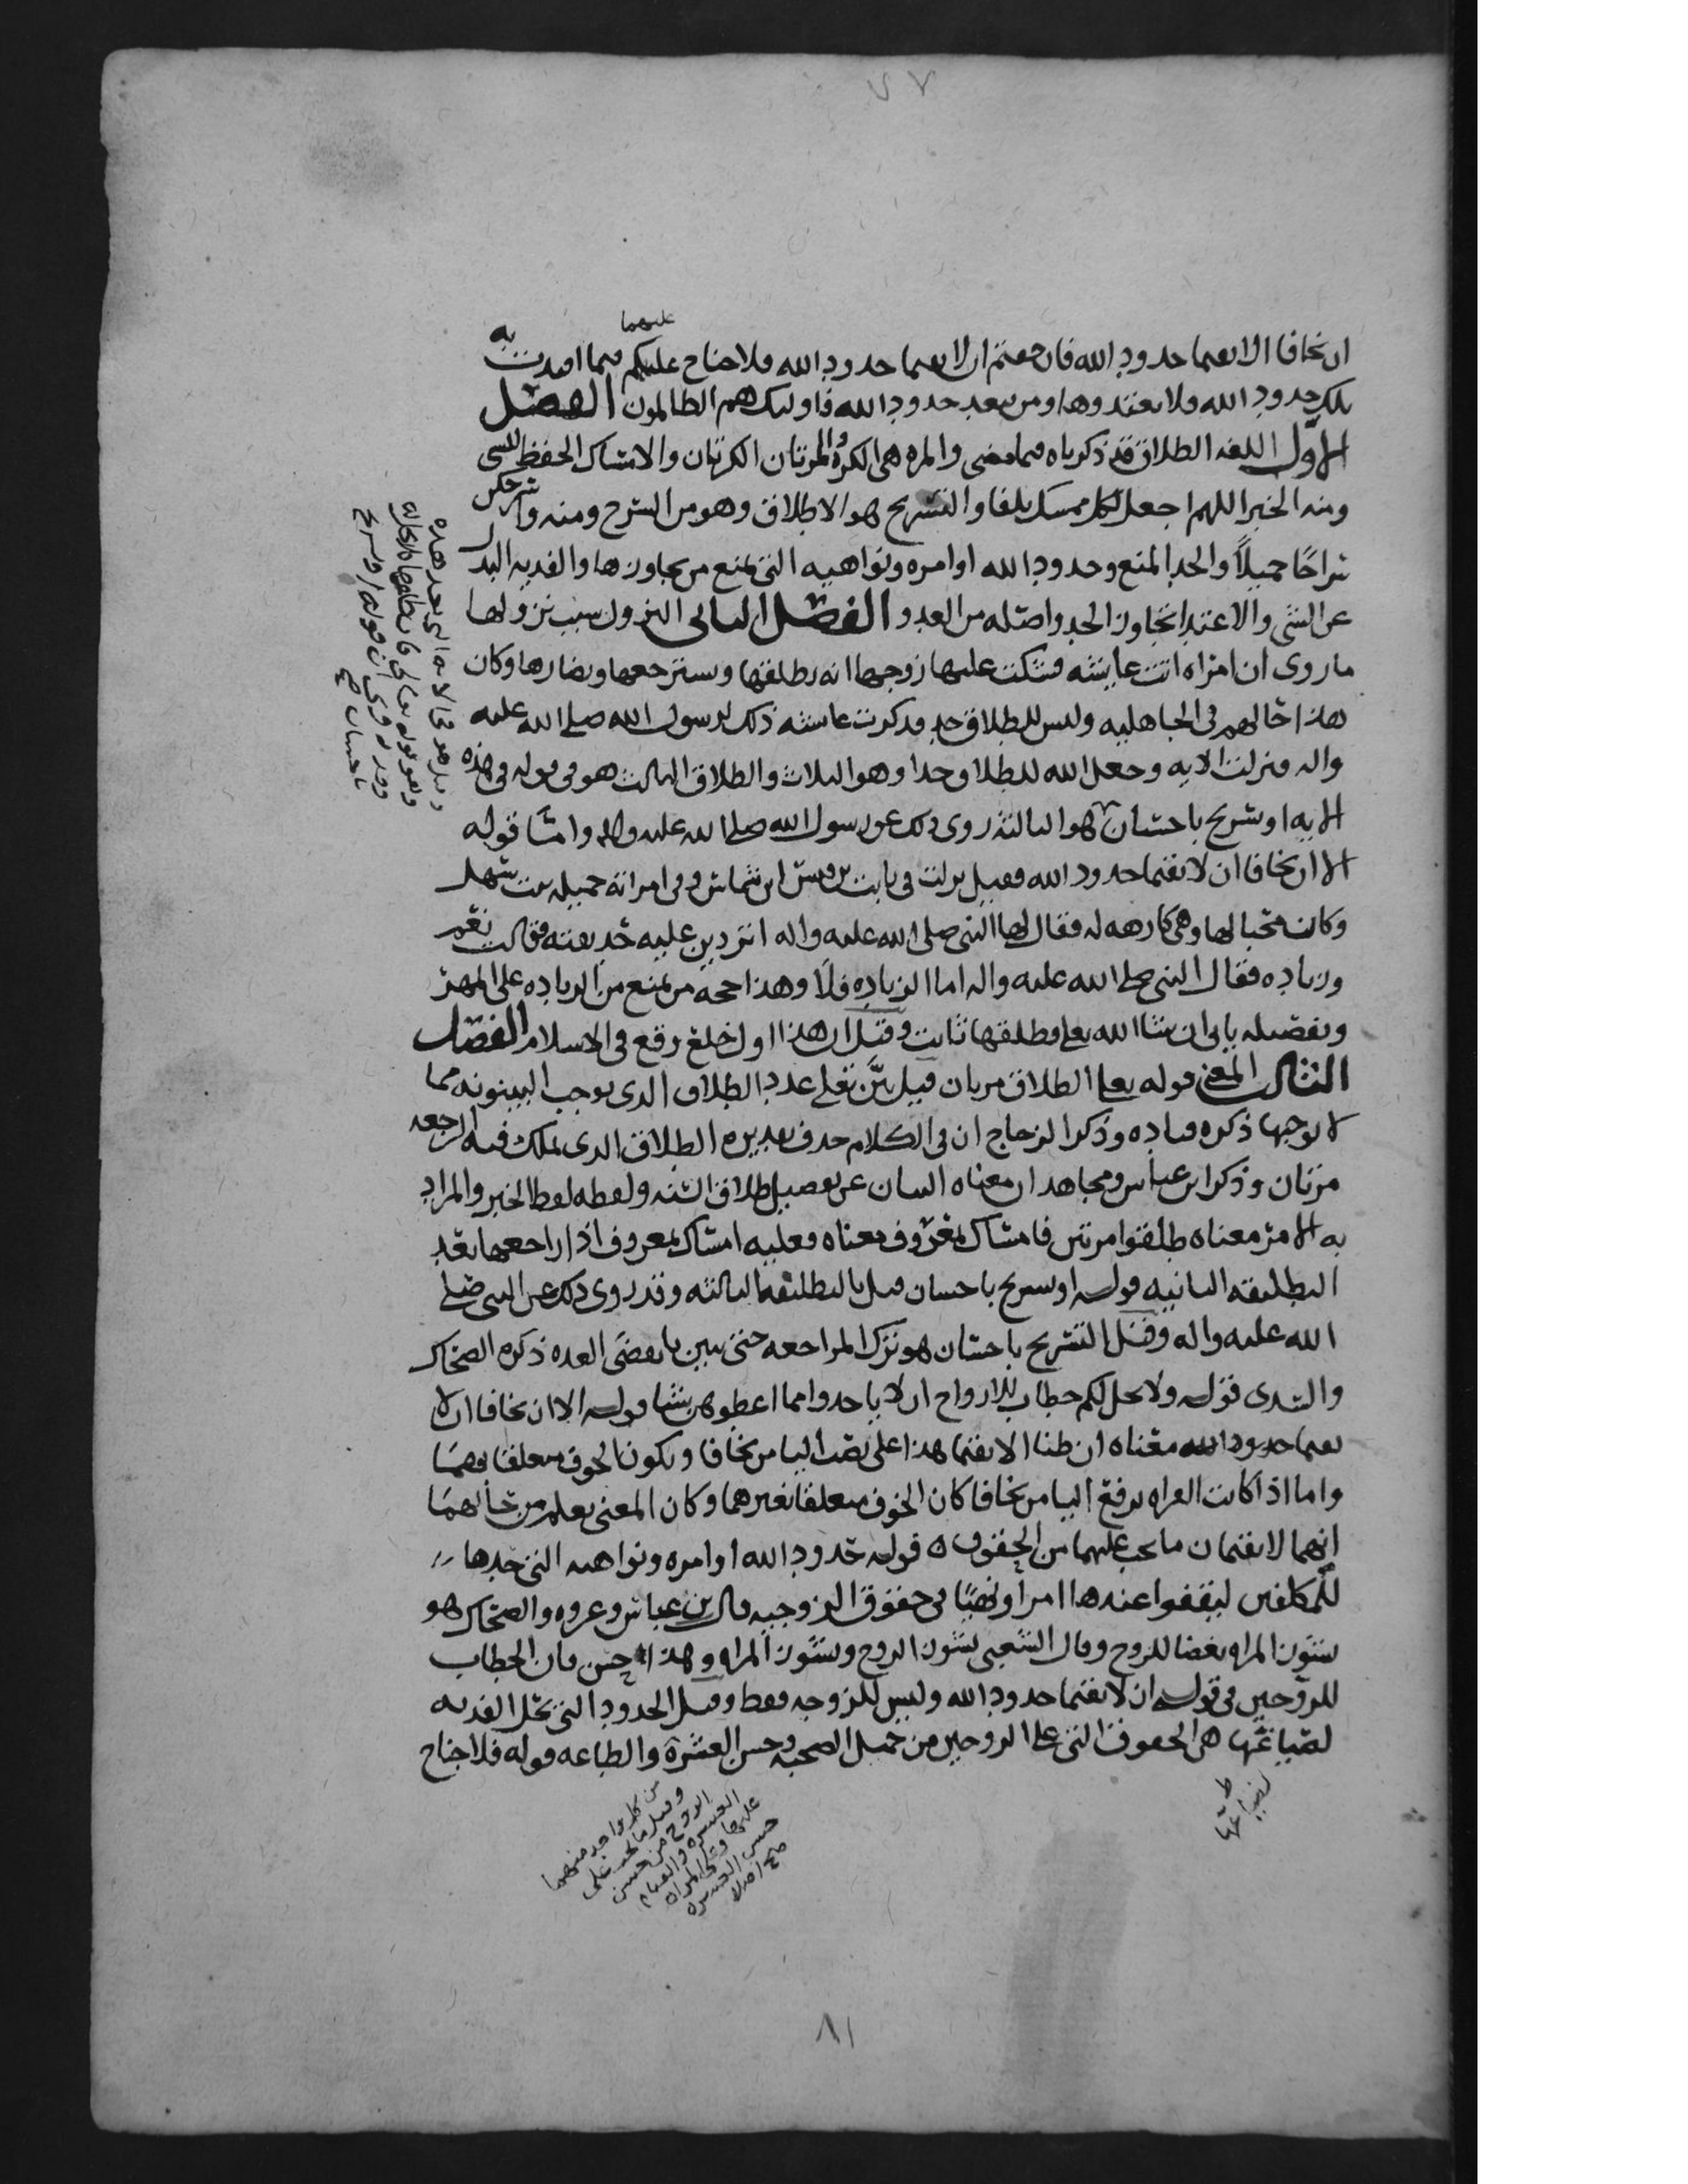 ٧٧
عليهما
ان يخافا الا يقيما حدود الله فان خفتم ان لا يقيما حدود الله فلا جناح عليكم فيما افتدت به
تلك حدود الله فلا تعتدوها ومن يتعد حدود الله فاولئك هم الظالمون الفصل
الاول اللغه الطلاق قد ذكرناه فيما مضى والمره هى الكره والمرتان الكرتان والامساك الحفظ للشى
ومنه الخبر اللهم اجعل لكل ممسك تلفا والتسريح هو الاطلاق وهو من السرح ومنه واسرحكن
سراحًا جميلاً والحد المنع وحدود الله اوامره ونواهيه التى تمنع من تجاوزها والفديه البدل
عن الشى والاعتدا تجاوز الحد واصله من العدو الفصل الثانى النزول سبب نزولها
ما روى ان امراه اتت عايشه فشكت عليها زوجها انه يطلقها ويسترجعها ويضارها وكان
هذا حالهم فى الجاهليه وليس للطلاق حد فذكرت عايشه ذلك لرسول الله صلى الله عليه
واله فنزلت الايه وجعل الله للطلاق حدا وهو الثلاث والطلاق الثالث هو فى قوله فى هذه
الايه او تسريح باحسان هو الثالثه روى ذلك عن رسول الله صلى الله عليه واله وامسا قوله
الا ان يخافا ان لا يقيما حدود الله فقيل نزلت فى ثابت بن قيس ابن شماس وفى امراته جميله بنت سهل
وكان محبا لها وهى كارهه له فقال لها النبى صلى الله عليه واله اتردين عليه حديقته فقالت نعم
وزياده فقال النبى صلى الله عليه واله اما الزياده فلا وهذا حجه من يمنع من الزياده على المهر
وتفصيله ياتى ان شا الله تعلى فطلقها ثابت وقيل ان هذا اول خلع وقع فى الاسلام الفصل
الثالث المعنى قوله تعلى الطلاق مرتان قيل بيَّن تعلى عدد الطلاق الذى يوجب البينونه مما
لا يوجبها ذكره قتاده وذكر الزجاج ان فى الكلام حذف تقديره الطلاق الذى يملك فيه الرجعه
مرتان وذكر ابن عباس ومجاهد ان معناه البيان عن تفصيل طلاق السنه ولفظه لفظ الخبر والمراد
به الامر معناه طلقوا مرتين فامساك بمعروف معناه فعليه امساك بمعروف اذا راجعها بعد
التطليقه الثانيه قوله او تسريح باحسان قيل بالتطليقه الثالثه وقد روى ذلك عن النبى صلى
الله عليه واله وقيل التسريح باحسان هو ترك المراجعه حتى تبين بانقضى العده ذكره الضحاك
والسدى قوله ولا يحل لكم خطاب للازواج ان لا ياخذوا مما اعطوهن شيا قوله الا ان يخافا ان لا
يقيما حدود الله معناه ان ظنا الا يقيما هذا على نصب اليا من يخافا ويكون الخوف متعلقا بهما
واما اذا كانت القراه برفع اليا من يخافا كان الخوف متعلقا بغيرهما وكان المعنى يعلم من حالهما
انهما لا يقيمان ما يجب عليهما من الحقوق ٥ قوله حدود الله اوامره ونواهيه التى حدها
للمكلفين ليقفوا عندها امرا ونهيًا فى حقوق الزوجيه قال بن عباس وعروه والضحاك هو
نشوز المراه بغضا للزوج وقال الشعبى نشوز الزوج ونشوز المراه وهذا احسن فان الخطاب
للزوجين فى قوله ان لا يقيما حدود الله وليس للزوجه فقط وقيل الحدود التى تحل الفديه
لضياعها هى الحقوق التى على الزوجين من جميل الصحبه وحسن العشرة والطاعه قوله فلا جناح
لضياعها ط
من كل واحد منهما
وقيل ما يجب على
الزوج من حسن
العشره والقيام
عليها وعلى المراه
حسن العشره
صح اصلا
بعد هذه
وهو قوله تعالى فان طلقها فلا تحل له
وقد روى ان قوله او تسريح
باحسان صح
٨١